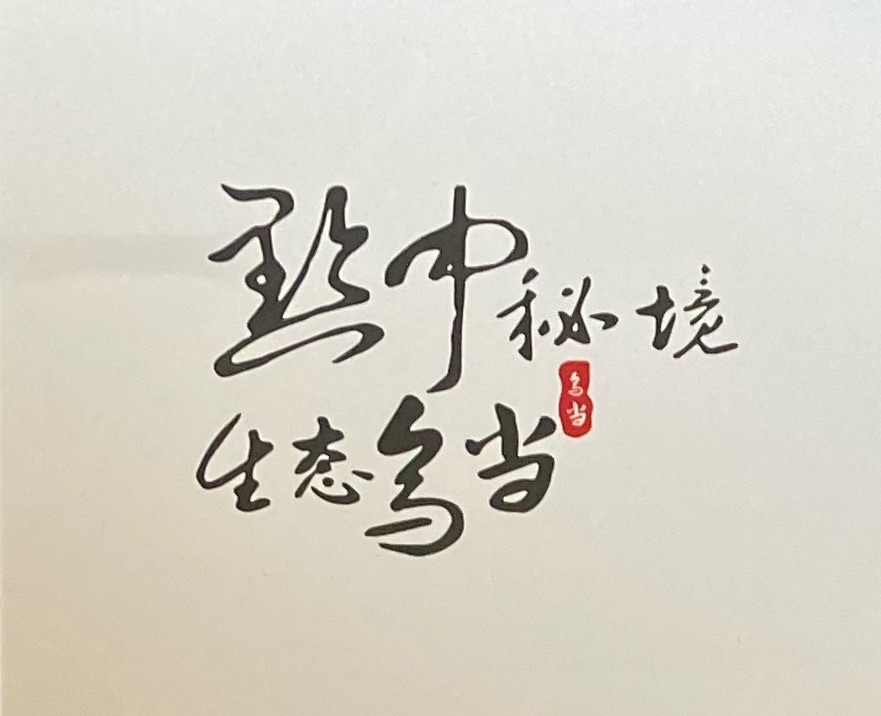 黔中秘境
乌当
生态乌当